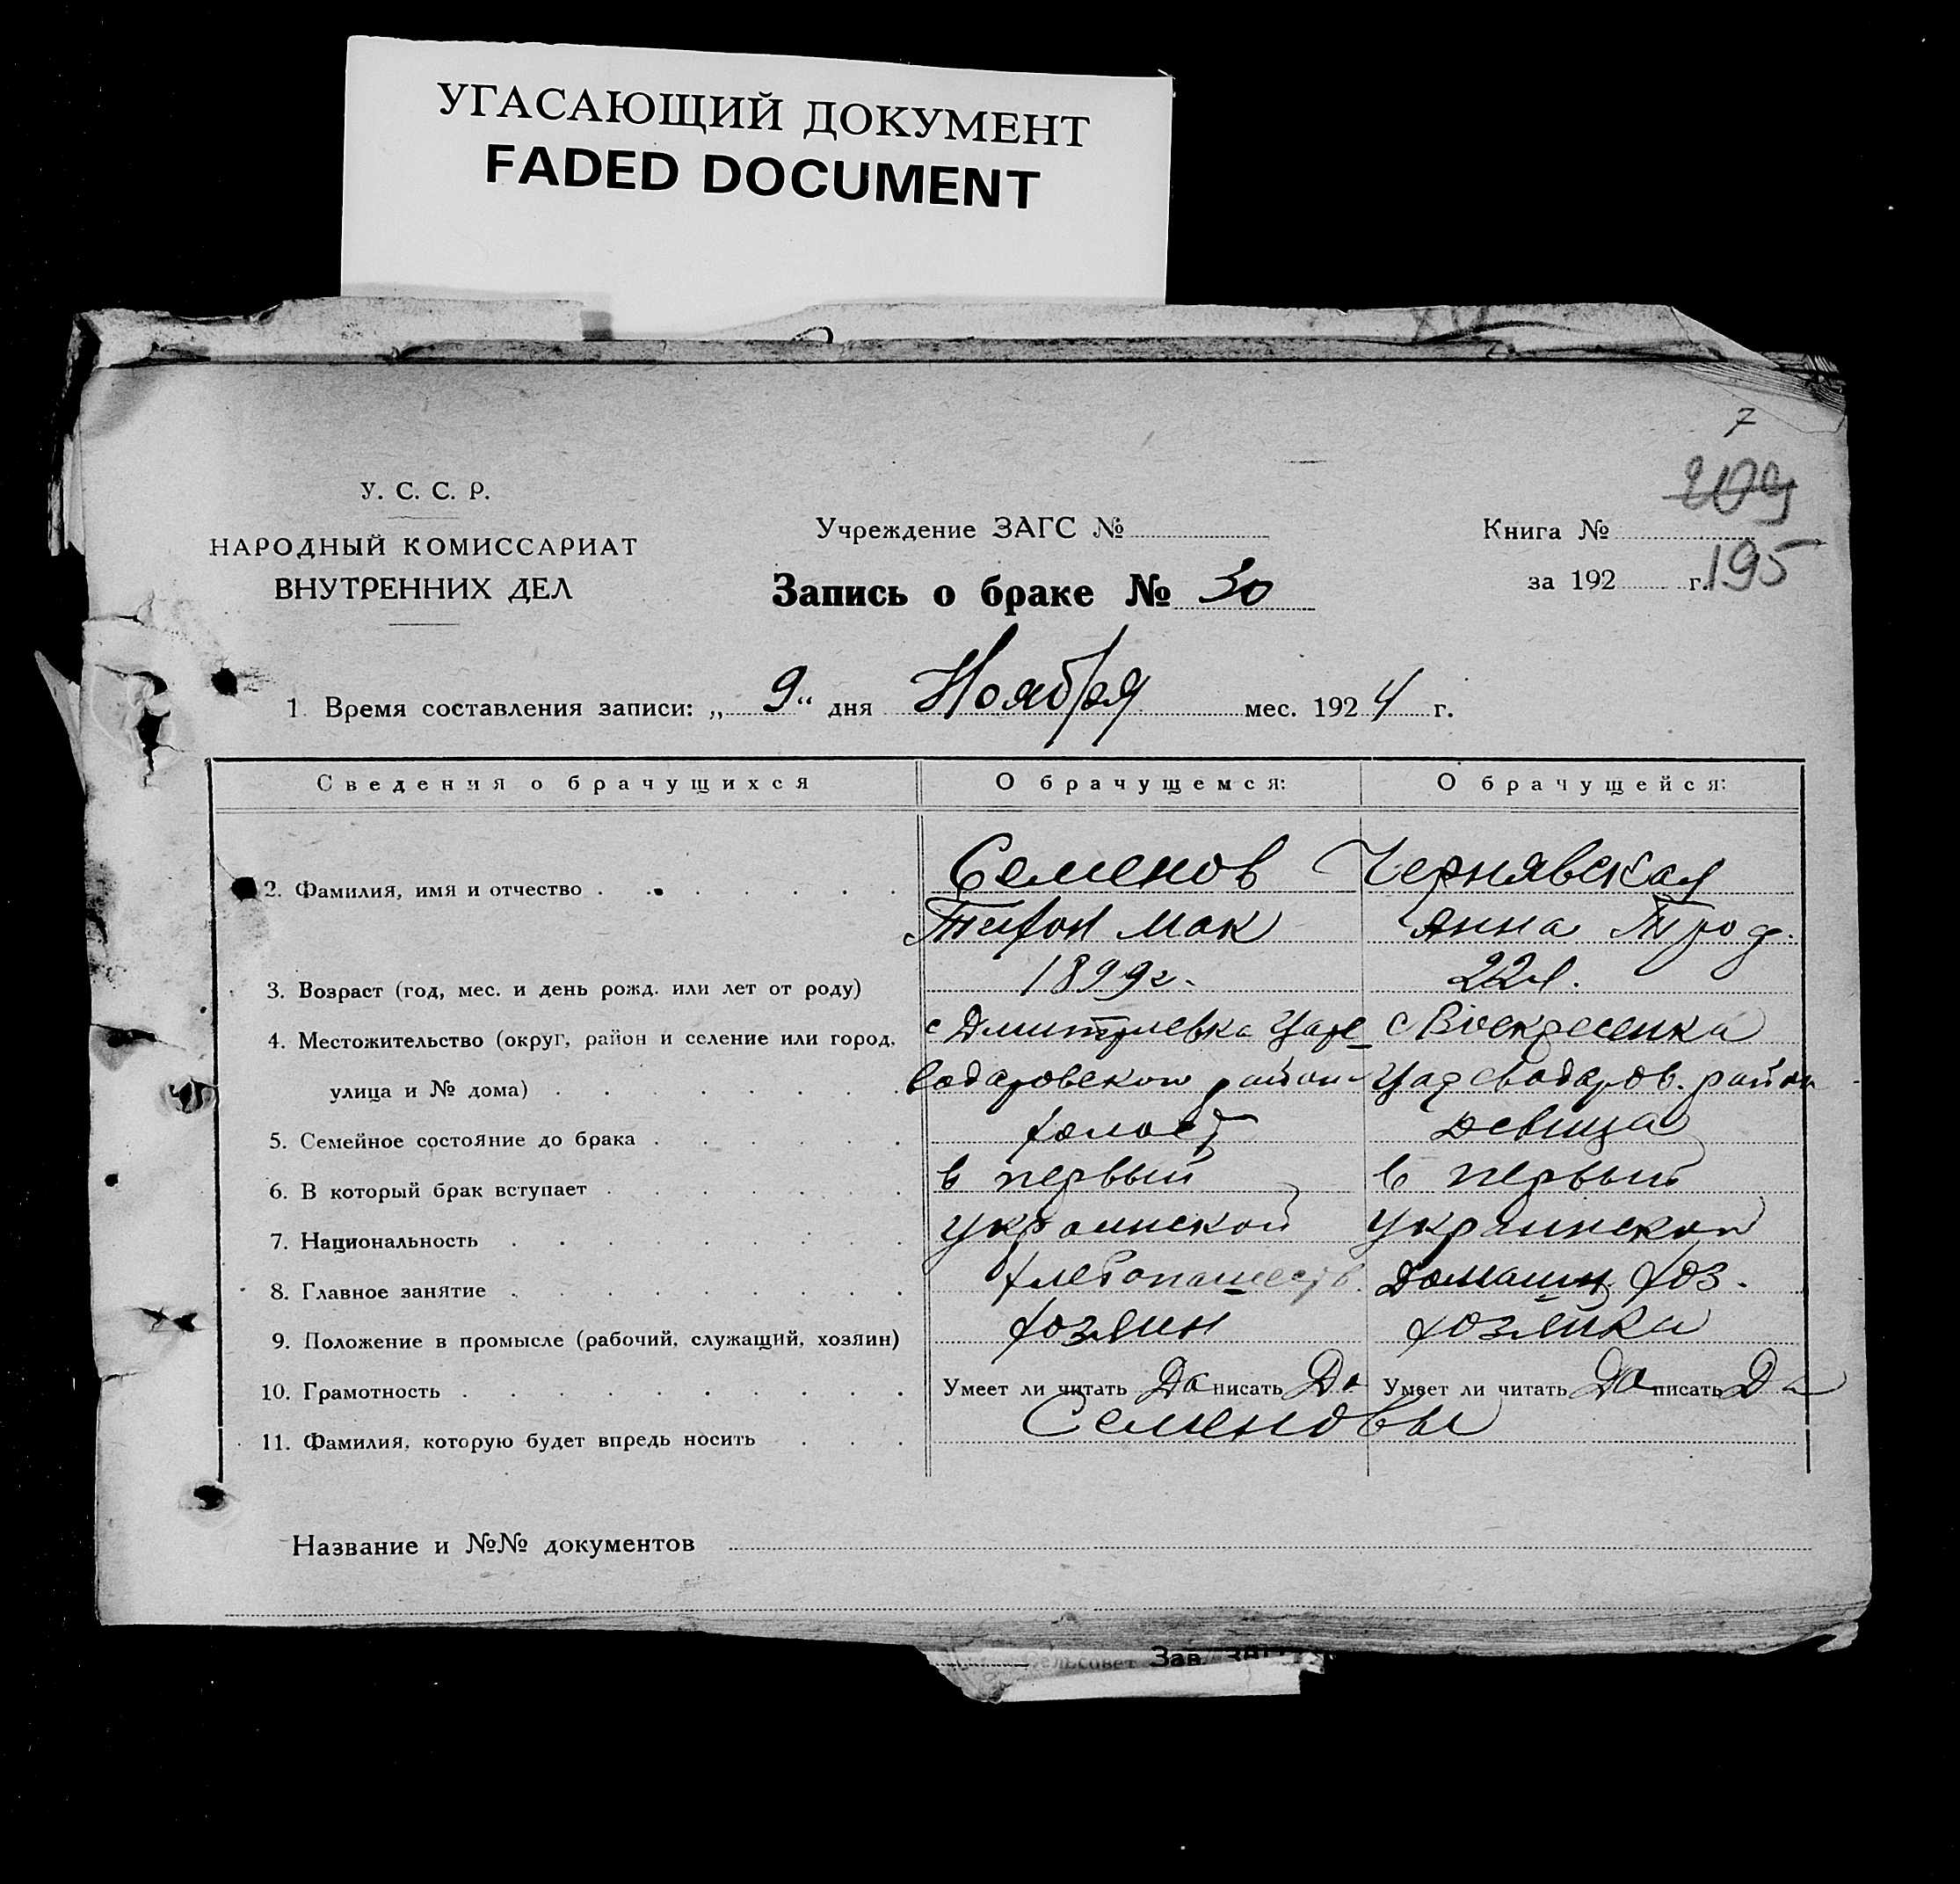 УГАСАЮЩИЙ ДОКУМЕНТ
FADED DOCUMENT
7
209
У. С. С. Р.
НАРОДНЫЙ КОМИССАРИАТ
ВНУТРЕННИХ ДЕЛ
Учреждение ЗАГС №
Запись о браке № 30
Книга №
за 192 г.
195
1. Время составления записи: „ 9 “ дня Ноября мес. 1924 г.
Сведения о брачущихся О брачущемся: О брачущейся:
2. Фамилия, имя и отчество Семенов Чернявская
Тифон Мак Анна Трод.
3. Возраст (год, мес. и день рожд. или лет от роду) 1899 г. 22 л.
4. Местожительство (округ, район и селение или город, с Дмитриевка Царе с Воскресенка
улица и № дома) водаровском район Цареводаров. район
5. Семейное состояние до брака холост девица
6. В который брак вступает в первый в первый
7. Национальность украинской украинской
8. Главное занятие хлебопашеств. домашн. хоз.
9. Положение в промысле (рабочий, служащий, хозяин) хозяин хозяйка
10. Грамотность Умеет ли читать Да писать Да Умеет ли читать Да писать Да
11. Фамилия, которую будет впредь носить Семеновы
Название и №№ документов
Сельсовет Зав.